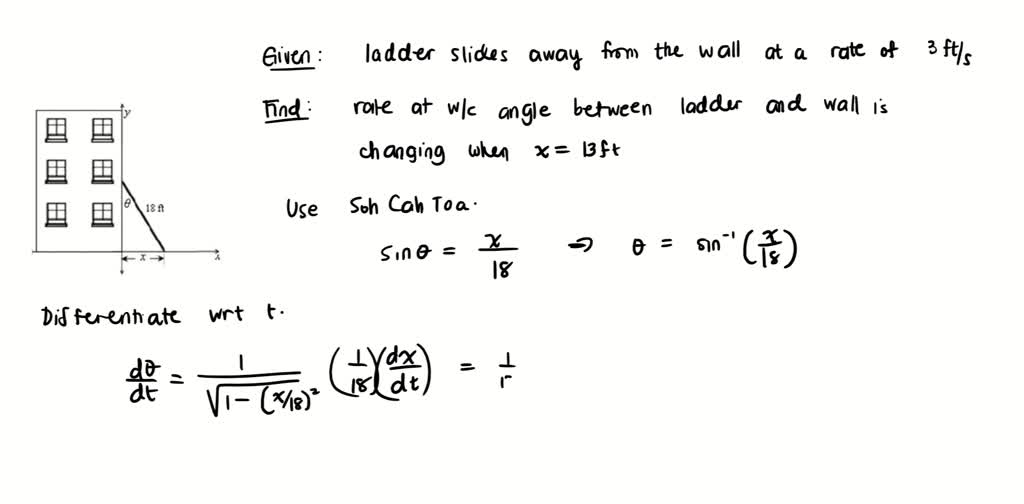 Given: ladder slides away from the wall at a rate of 3 ft/s
Find: rate at w/c angle between ladder and wall is
changing when x = 13ft
y
θ
18 ft
x
x
Use Soh Cah Toa.
sinθ = x/18 ⇒ θ = sin⁻¹(x/18)
Differentiate wrt t.
dθ/dt = 1/√(1-(x/18)²) (1/18)(dx/dt) = 1/1